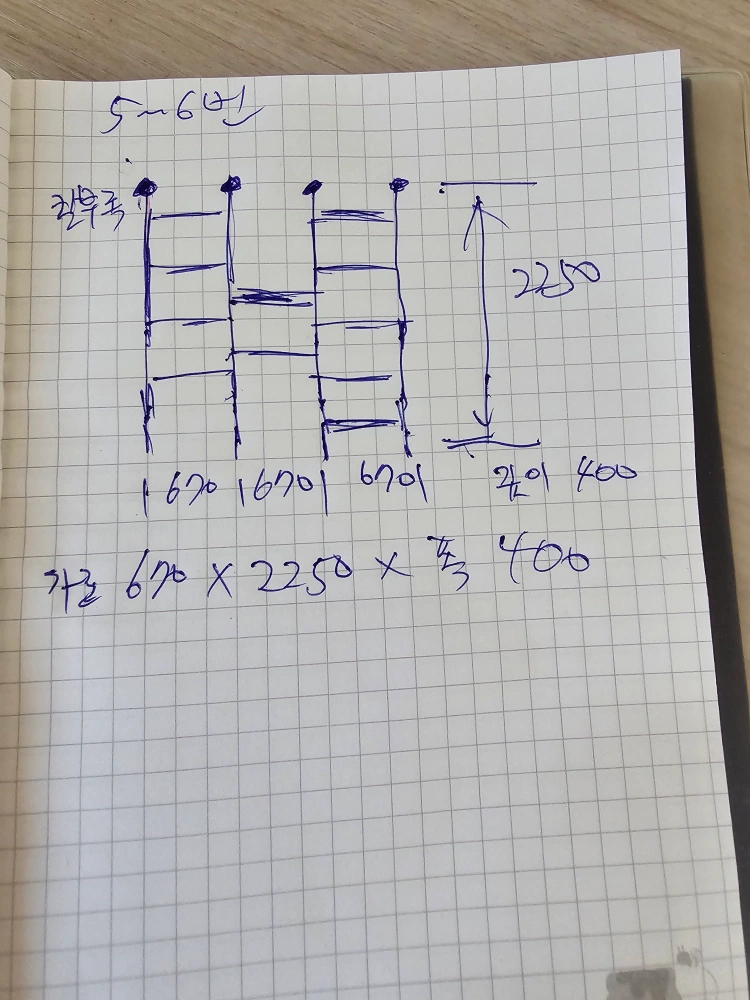 5~6번
칼부록
2250
670 670 670 깊이 400
가로 670 X 2250 X 폭 400